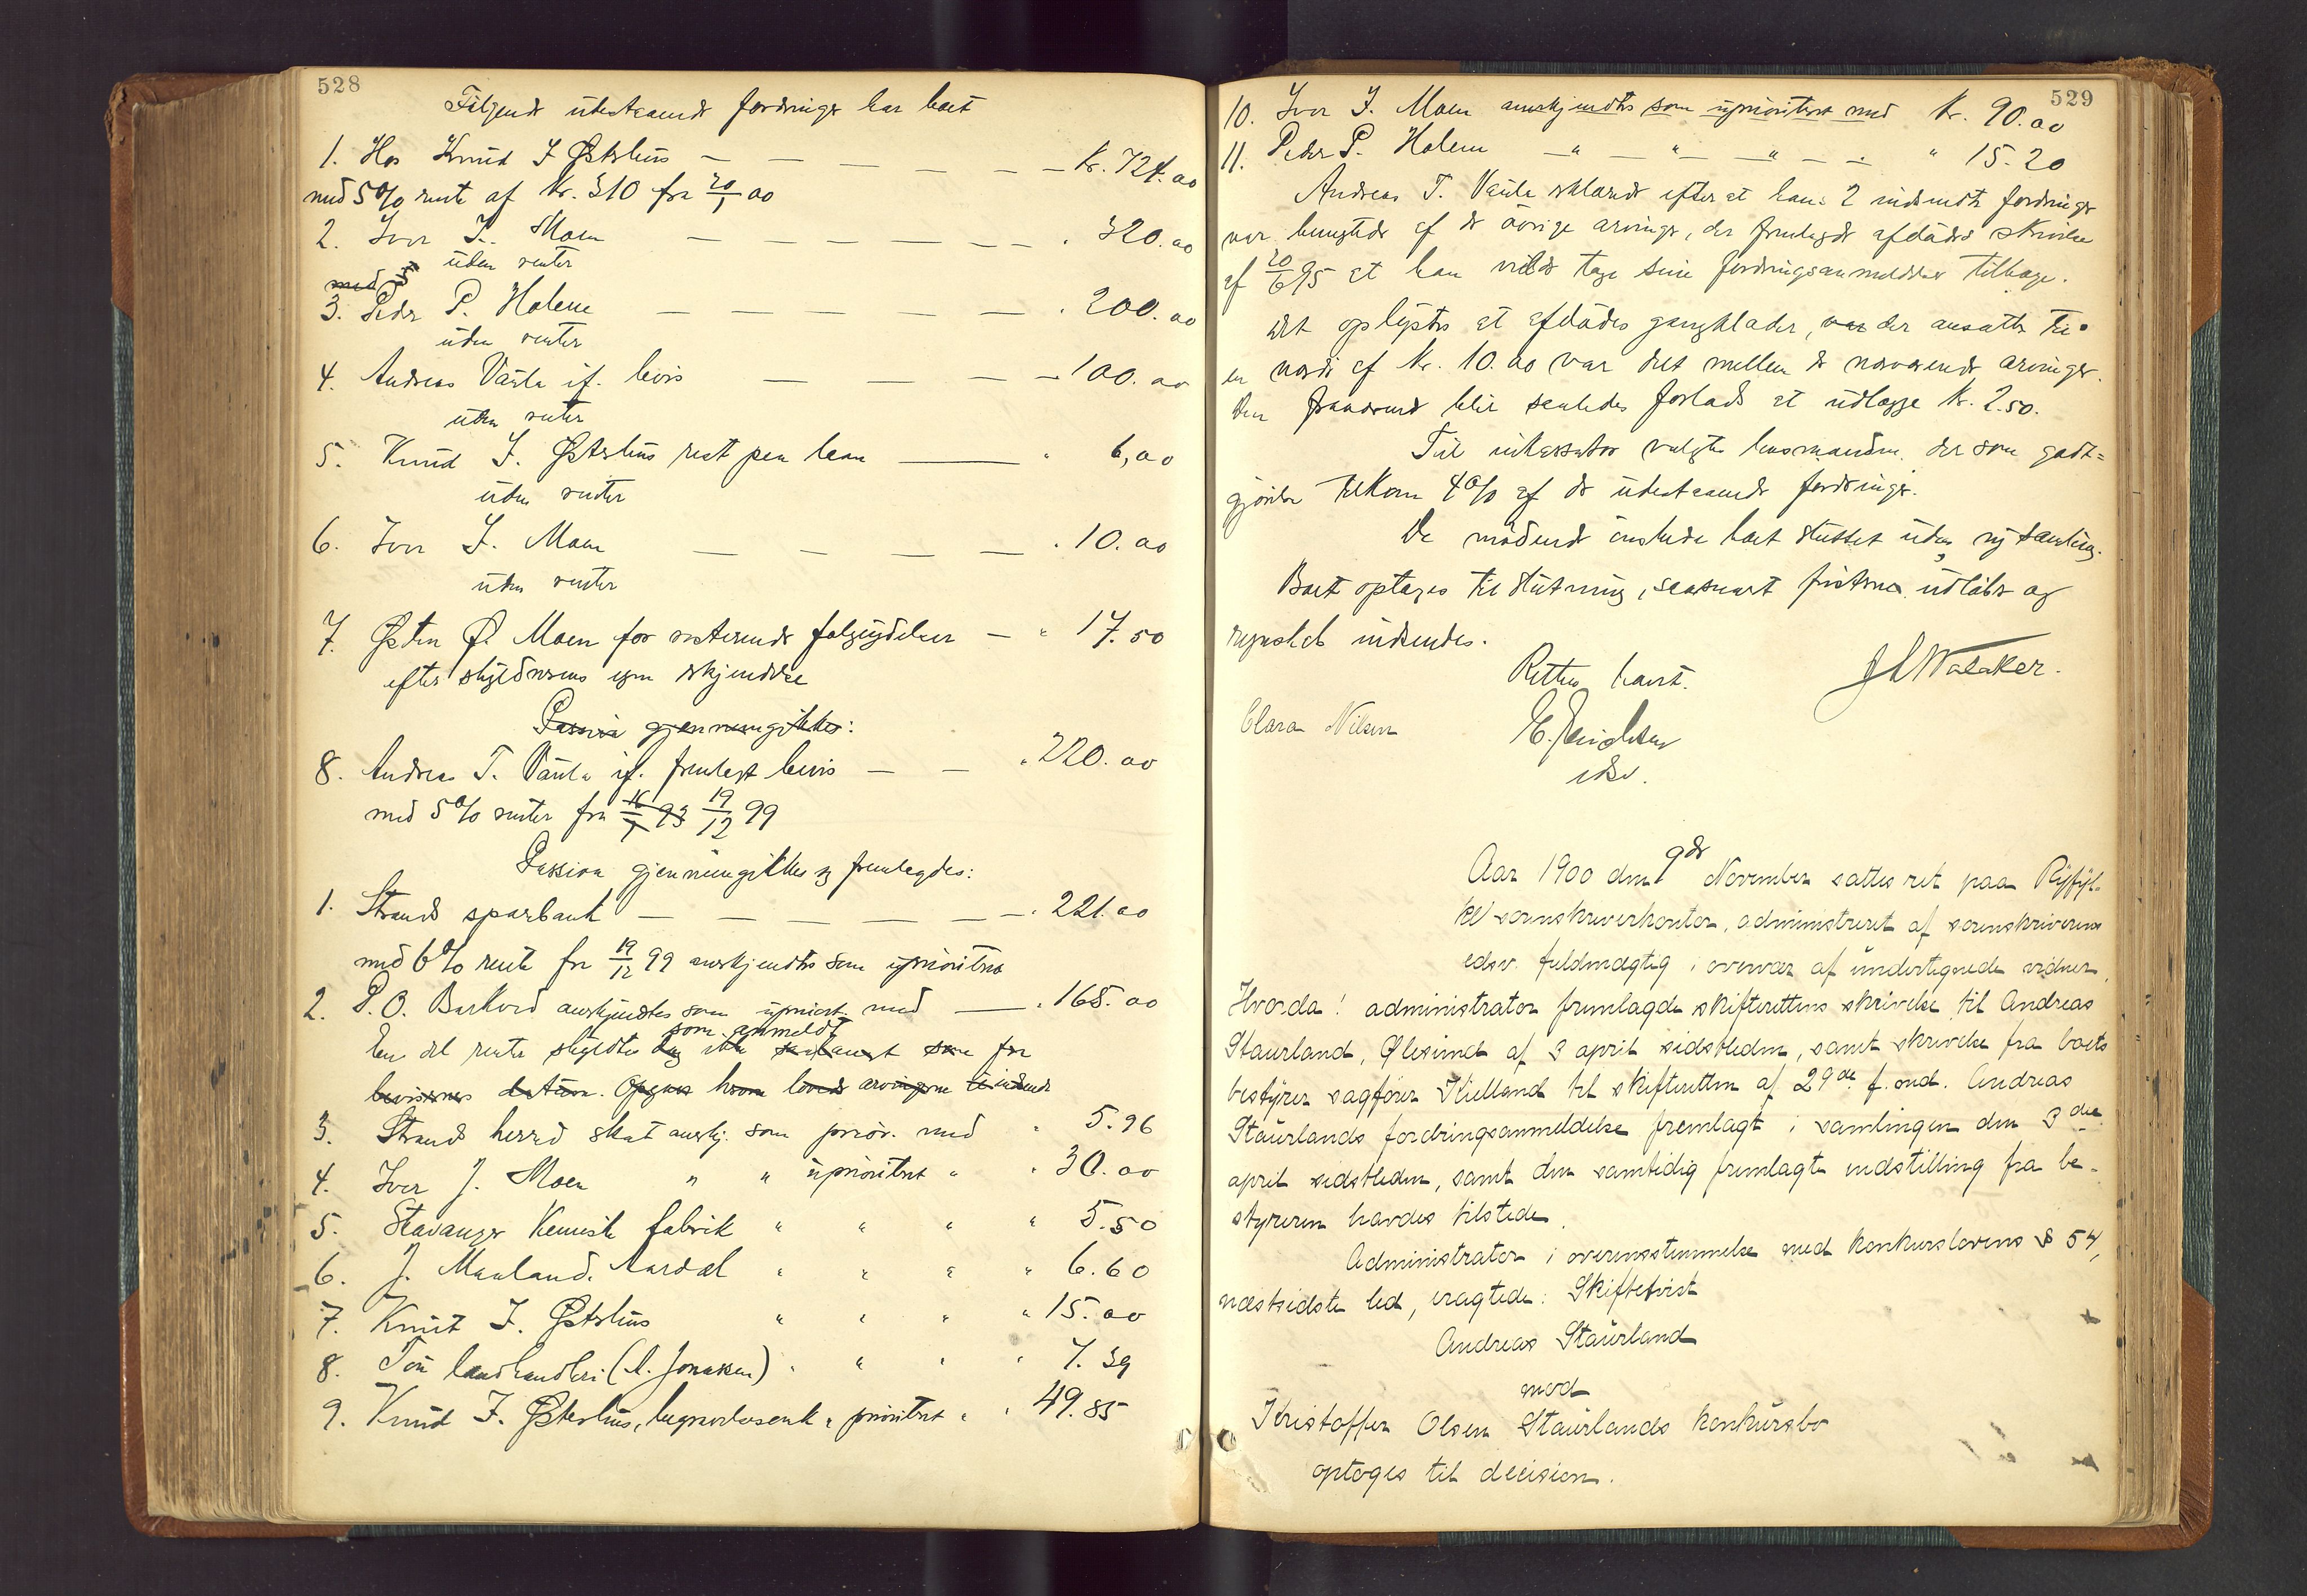 528
Følgende udestaaende fordringer har boet
1. Hos Knud I Østerhus — — — — — Kr. 724.00
med 5% rente af Kr. 310 fra 20/1 00
2. Iver I. Moen — — — — — — " 320.00
uden renter
med 5
3. Peder P. Holene — — — — — " 200.00
uden renter
4. Andreas Vaula if. bevis — — — — 100.00
uden renter
5. Knud I. Østerhus rest paa laan — " 6,00
uden renter
6. Iver I. Moen — — — — " 10.00
uden renter
7. Østen Ø. Moen for resterende følgeydelser — " 17.50
efter skyldnerens egen erkjendelse
Passiva gjennemgikkes:
8. Andreas T. Vaula if. fremlagt bevis — — " 220.00
med 5% renter fra 16/7 93 19/12 99
Passiva gjennemgikkes og fremlagdes:
1. Strands sparbank — — — — — " 221.00
med 6% rente fra 19/12 99 anerkjendtes som uprioritert
2. P. O. Barkved anerkjendtes som uprior. med — " 165.00
som anmeldt
En del renter skyldtes dog ikke som fra
bevisernes datum. arvingerne
3. Strands herred skat anerkj. som prior. med " 5.96
4. Iver J. Moen " " uprioritert " " 30.00
5. Stavanger Kemisk fabrik " " " " 5.50
6. J. Mauland. Aardal " " " " 6.60
7. Knut I. Østerhus " " " " 15.00
8. Tau landhandleri (A. Jonassen) " " " " 7.39
9. Knud I. Østerhus, begravelsesomk. " prioritert " " 49.85
529
10. Iver I. Moen anerkjendtes som uprioritert med Kr. 90.00
11. Peder P. Holene — " — " — " — — " 15.20
Andreas T. Vaula erklærede efter at hans 2 indsendte fordringer
var benegtede af de øvrige arvinger, der fremlagde afdødes skrivelse
af 20/6 95 at han vilde tage sine fordringsanmeldelser tilbage.
Det oplystes at afdødes gangklæder, var der ansattes til
en værdi af Kr. 10.00 var delt mellem de nærværende arvinger.
Den fraværende blir saaledes forlods at udlægge Kr. 2.50.
Til inkassator valgtes lensmanden, der som godt=
gjørelse tilkom 4% af de udestaaende fordringer.
De mødende ønskede boet sluttet uden ny samling.
Boet optages til slutning, saasnart fristerne udløber og
regnskab indsendes.
Retten hævet. J L Walaker.
Clara Nilsen E. Erichsen
edsv.
Aar 1900 den 9de November sattes ret paa Ryfyl-
ke sorenskriverkontor, administreret af sorenskriverens
edsv. fuldmægtig i overvær af undertegnede vidner,
Hvorda! administrator fremlagde skifterettens skrivelse til Andreas
Staurland, Ølesund af 3 april sidstleden, samt skrivelse fra boets
bestyrer sagfører Kielland til skifteretten af 29de f. md. Andreas
Staurlands fordringsanmeldelse fremlagt i samlingen den 3die
april sidstleden, samt den samtidig fremlagte indstilling fra be-
styreren havdes tilstede.
Administrator i overensstemmelse med konkurslovens § 54,
næstsidste led, eragtede: Skiftetvist
Andreas Staurland
mod
Kristoffer Olsen Staurlands konkursbo
optages til decision.